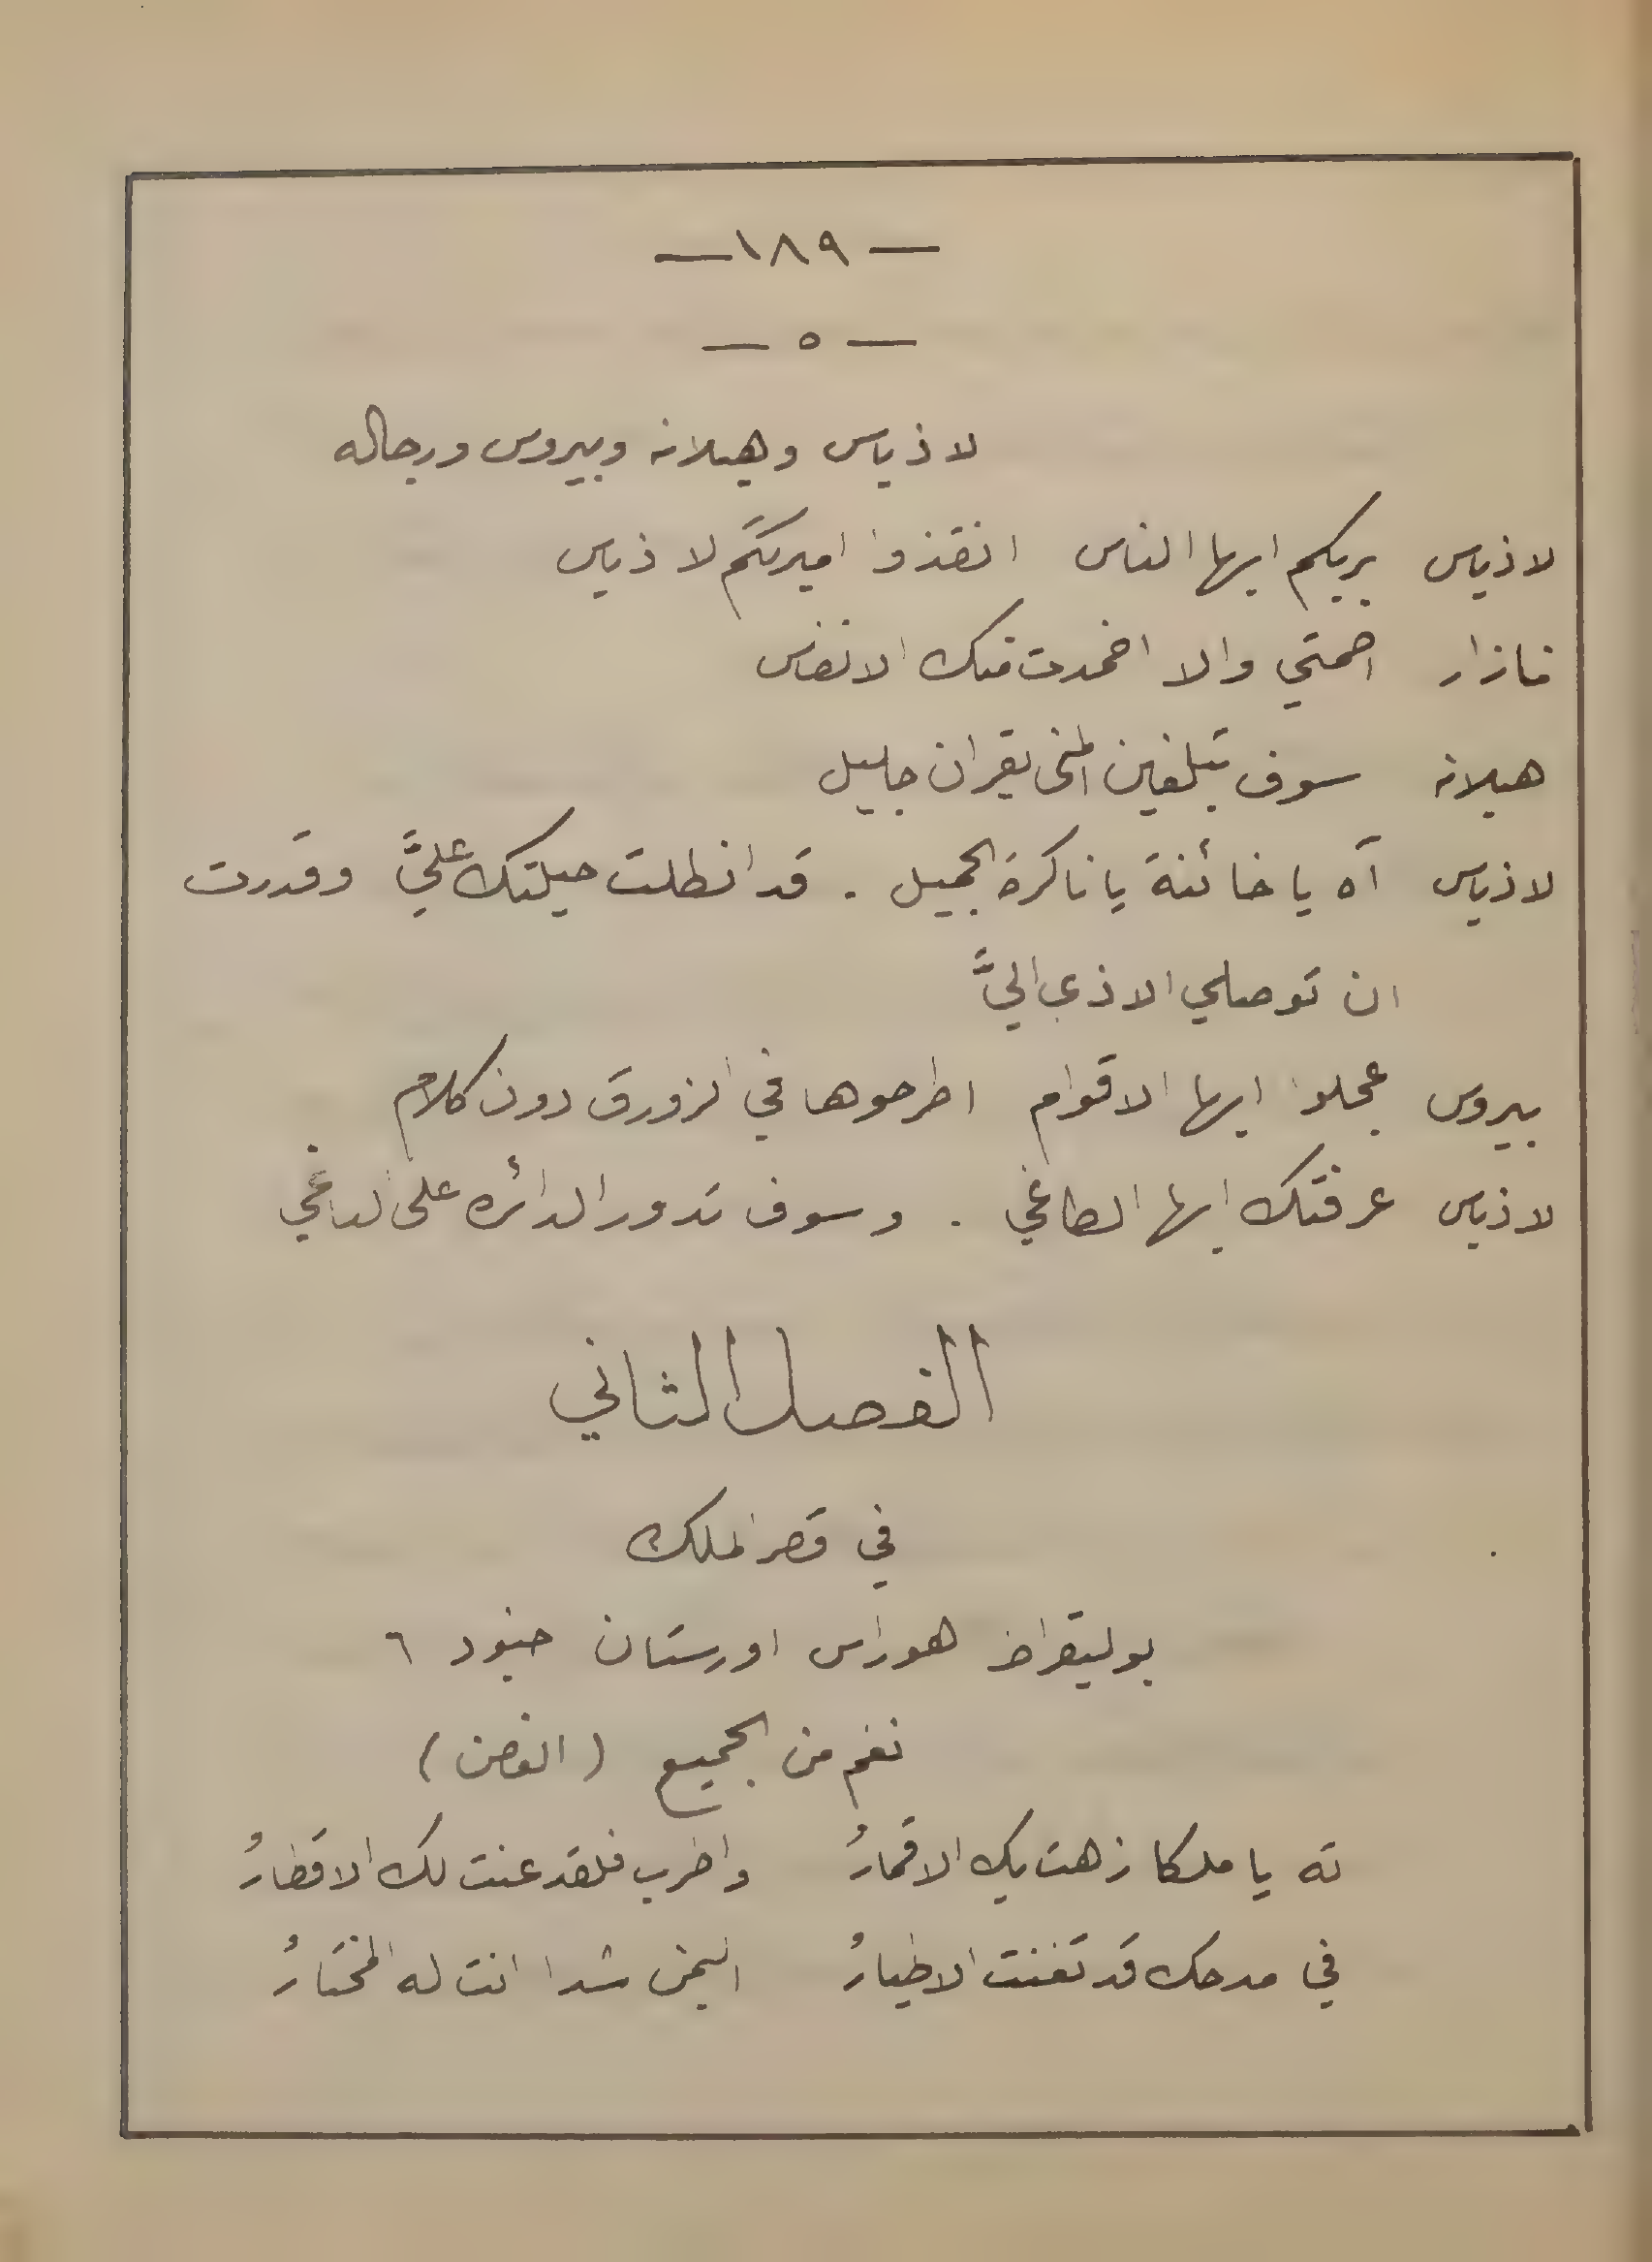 — ١٨٩ —
— ٥ —
لاذياس وهيلانه وبيروس ورجاله
لاذياس بربكم ايها الناس انقذوا اميرتكم لاذياس
فازار اصمتي والا اخمدت منك الانفاس
هيلانه سوف تبلغين المنى بقران جليل
لاذياس آه يا خائنة يا ناكرة الجميل . قد انطلت حيلتك عليَّ وقدرت
ان توصلي الاذى اليَّ
بيروس عجلوا ايها الاقوام اطرحوها في الزورق دون كلام
لاذياس عرفتك ايها الطاغي . وسوف تدور الدائره على الباغي
الفصل الثاني
في قصر الملك
بوليقراط هوراس اورستان جنود ٦
نغم من الجميع ( الغصن )
ته يا ملكا زهت بك الاقمارُ واطرب فلقد عنت لك الاقطارُ
في مدحك قد تغنت الاطيارُ اليمن شدا انت له المختارُ